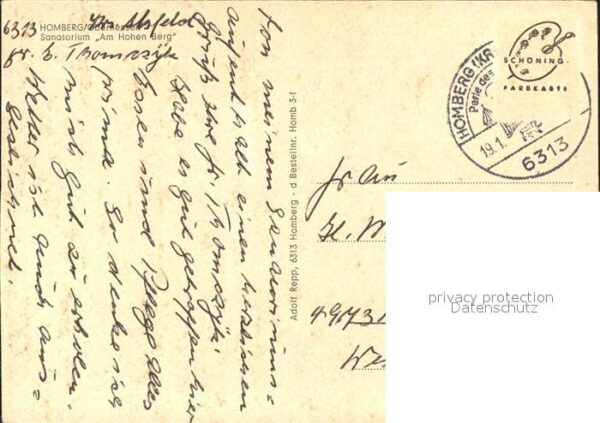 6313 HOMBERG/Oberhessen Krs Alsfeld
Sanatorium "Am Hohen Berg"
Fr. E. Thomczyk
Von meinem Sanatoriums=
aufenthalt einen herzlichen
Gruß Ihre Fr. Thomczyk
Habe es gut getroffen hier
Essen und Pflege alles
prima. So denke ich
mich gut zu erholen.
Wetter ist auch aus=
Adolf Repp, 6313 Homberg - d Bestellnr. Homb 3-1
HOMBERG (KR
Perle des
19.1.
6313
SCHÖNING
FARBKARTE
Frau
privacy protection
Datenschutz